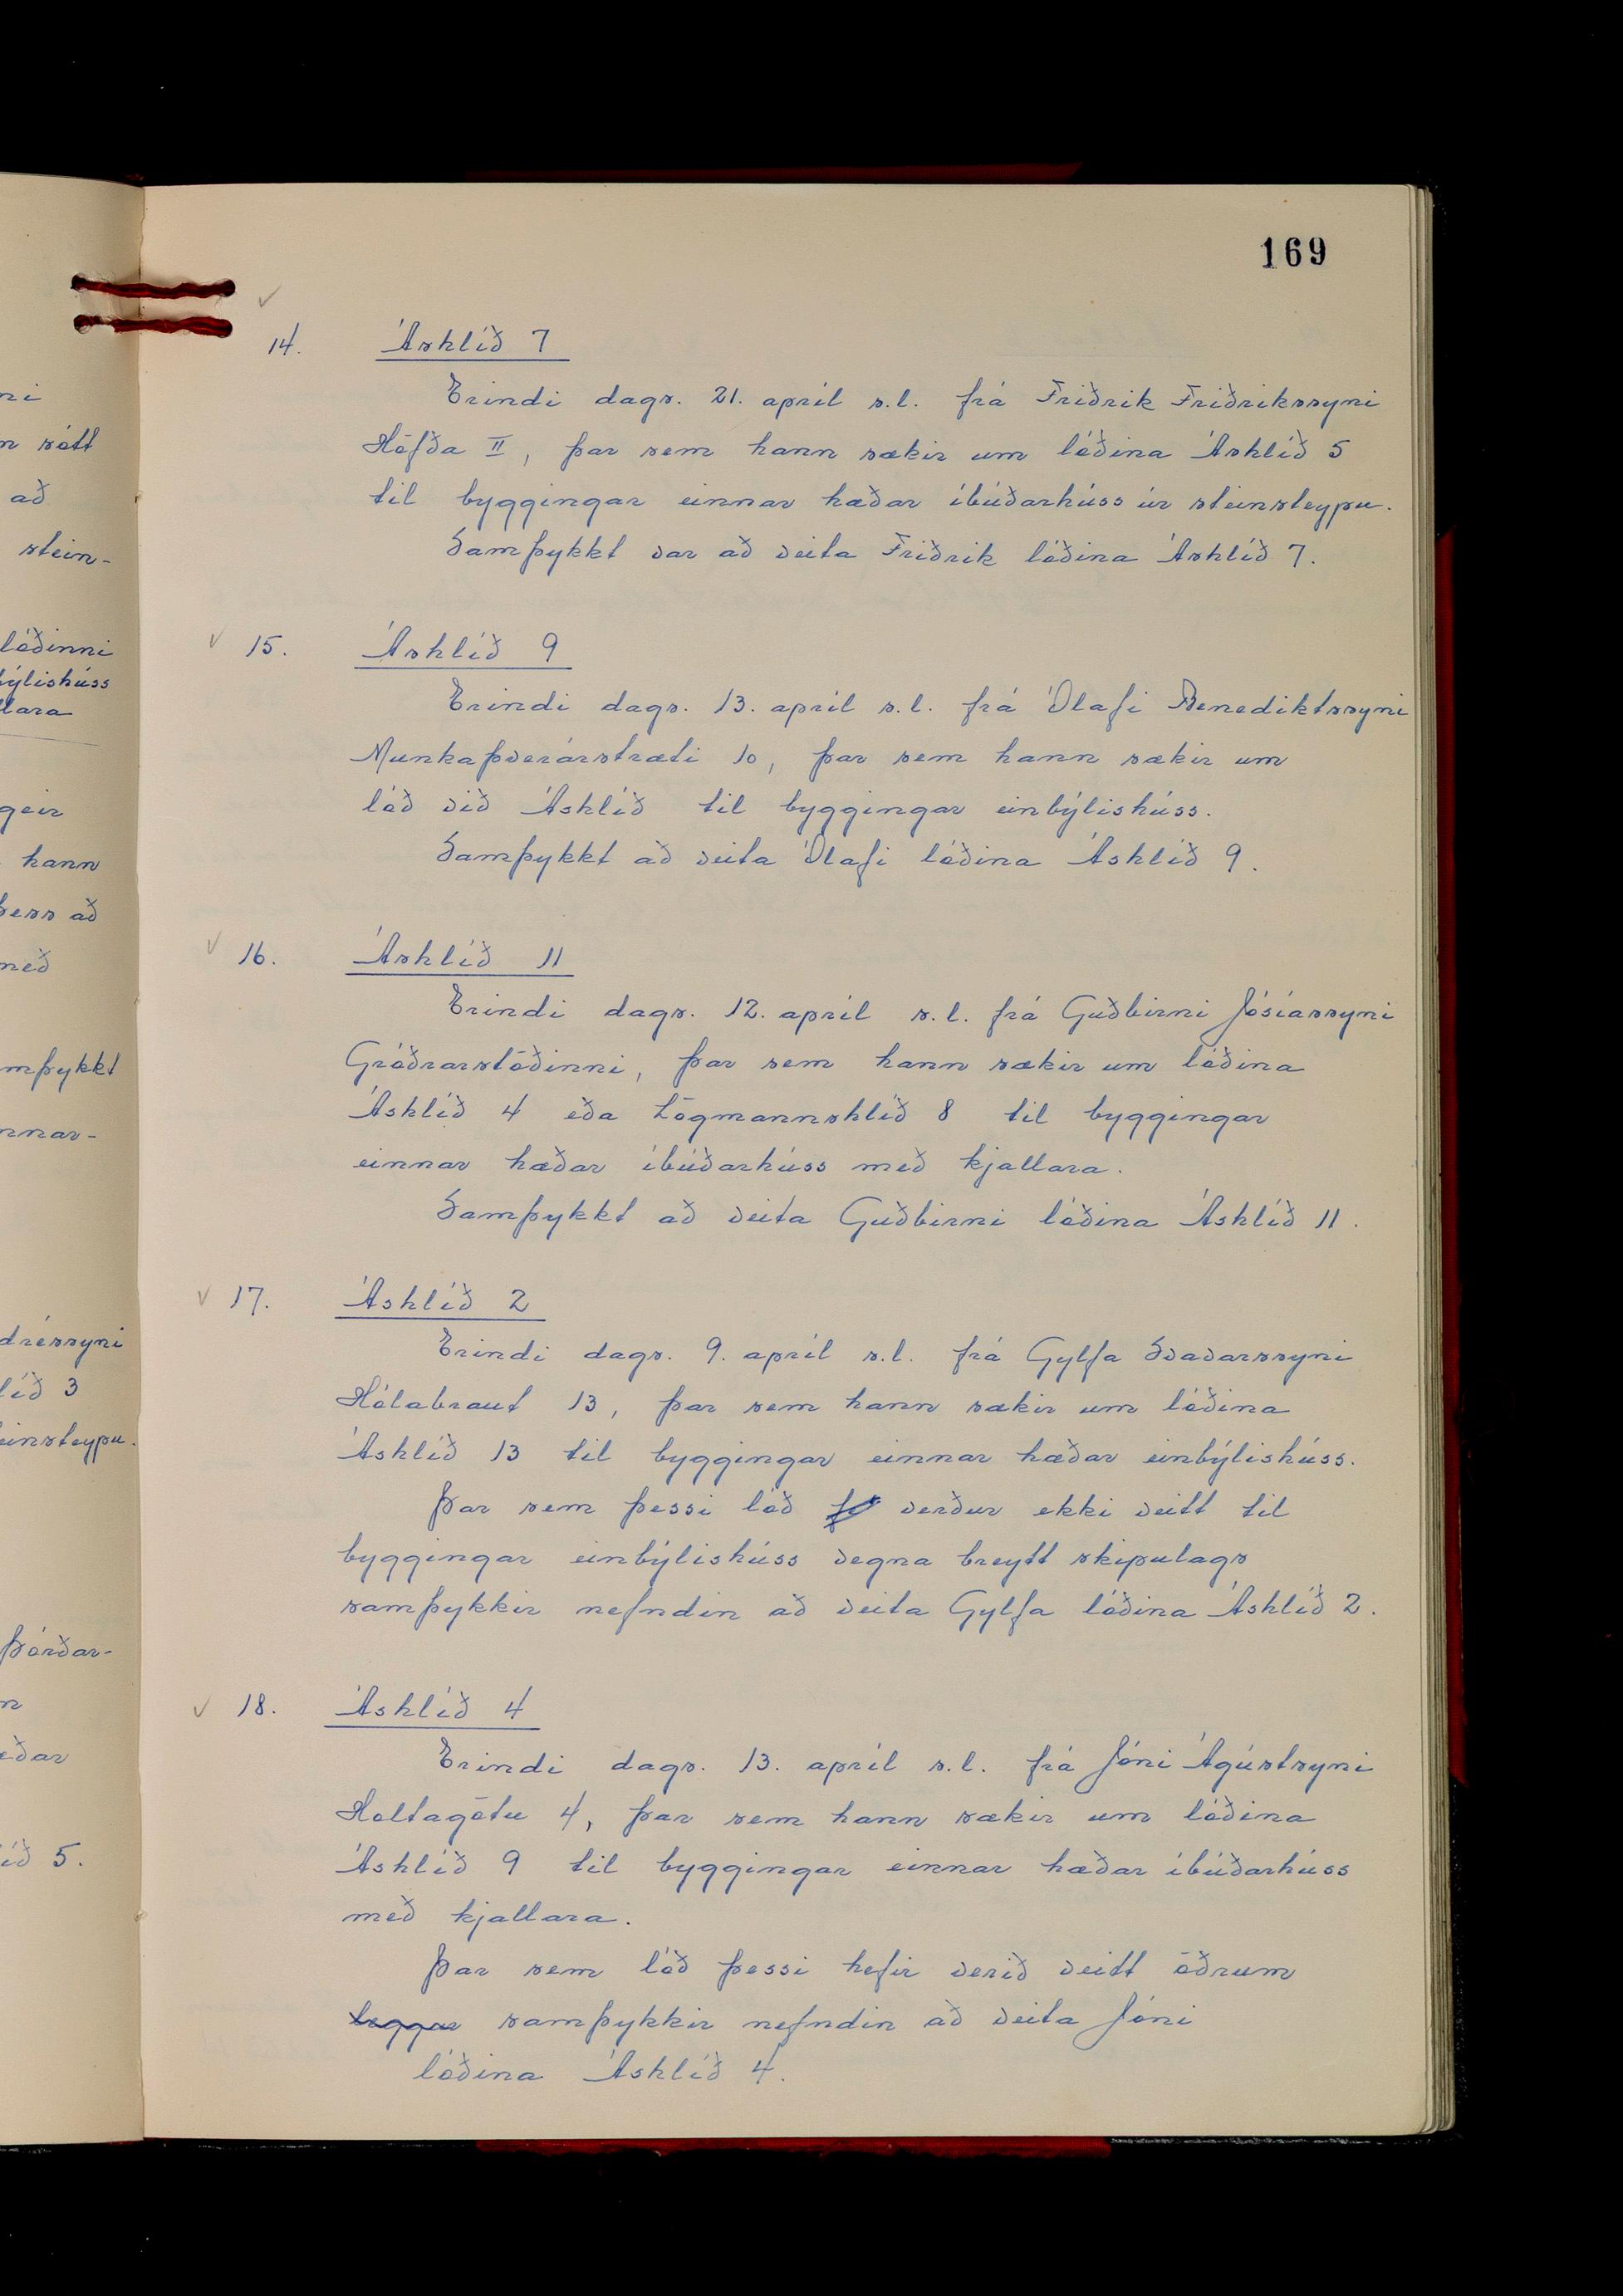 169
14. Áshlíð 7
Erindi dags. 21. apríl s.l. frá Friðrik Friðrikssyni
Höfða II, þar sem hann sækir um lóðina Áshlíð 5
til byggingar einnar hæðar íbúðarhúss úr steinsteypu.
Samþykkt var að veita Friðrik lóðina Áshlíð 7.
15. Áshlíð 9
Erindi dags. 13. apríl s.l. frá Ólafi Benediktssyni
Munkaþverárstræti 10, þar sem hann sækir um
lóð við Áshlíð til byggingar einbýlishúss.
Samþykkt að veita Ólafi lóðina Áshlíð 9.
16. Áshlíð 11
Erindi dags. 12. apríl s.l. frá Guðbirni Jósíassyni
Gróðrarstöðinni, þar sem hann sækir um lóðina
Áshlíð 4 eða Lögmannshlíð 8 til byggingar
einnar hæðar íbúðarhúss með kjallara.
Samþykkt að veita Guðbirni lóðina Áshlíð 11.
17. Áshlíð 2
Erindi dags. 9. apríl s.l. frá Gylfa Svavarssyni
Hólabraut 13, þar sem hann sækir um lóðina
Áshlíð 13 til byggingar einnar hæðar einbýlishúss.
Þar sem þessi lóð verður ekki veitt til
byggingar einbýlishúss vegna breytt skipulags
samþykkir nefndin að veita Gylfa lóðina Áshlíð 2.
18. Áshlíð 4
Erindi dags. 13. apríl s.l. frá Jóni Ágústsyni
Holtagötu 4, þar sem hann sækir um lóðina
Áshlíð 9 til byggingar einnar hæðar íbúðarhúss
með kjallara.
Þar sem lóð þessi hefir verið veitt öðrum
leggur samþykkir nefndin að veita Jóni
lóðina Áshlíð 4.